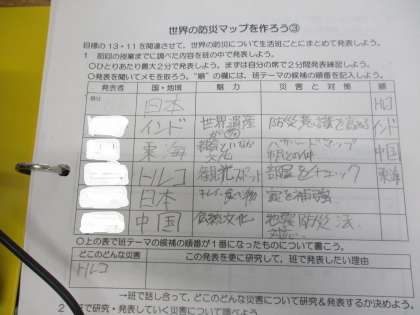 世界の防災マップを作ろう③
目標の13・11を関連させて、世界の防災について生活班ごとにまとめて発表しよう。
1 前回の授業までに調べた内容を班の中で発表しよう。
○ひとりあたり最大2分で発表しよう。まずは自分の席で2分間発表練習しよう。
○発表を聞いてメモを取ろう。"順"の欄には、班テーマの候補の順番を記入しよう。
発表者 国・地域 魅力 災害と対策 順
自分 日本
インド 世界遺産 防災意識を高める インド
東海 文化 ハザードマップ 中国
トルコ スポット 部屋をチェック 東海
日本 食べ物 家を補強
中国 伝統文化 地震防災法
○上の表で班テーマの候補の順番が1番になったものについて書こう。
どこのどんな災害 この発表を更に研究して、班で発表したい理由
トルコ
→班で話し合って、どこのどんな災害について研究&発表するか決めよう。
2 班で研究・発表していく災害について調べよう。